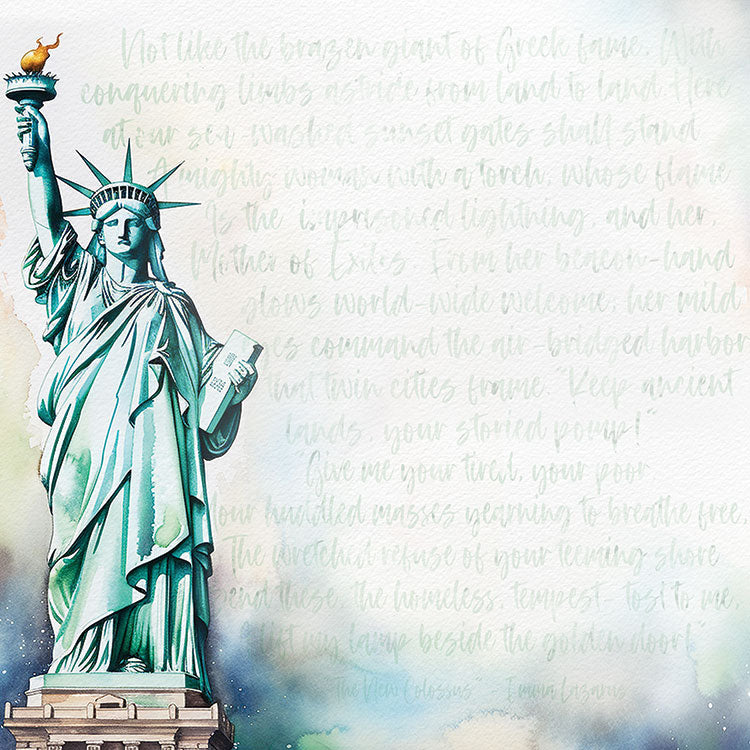 Not like the brazen giant of Greek fame, With
conquering limbs astride from land to land Here
at our sea-washed sunset gates shall stand
A mighty woman with a torch, whose flame
Is the imprisoned lightning, and her,
Mother of Exiles. From her beacon-hand
glows world-wide welcome; her mild
es command the air-bridged harbor
that twin cities frame. "Keep ancient
lands, your storied pomp!"
"Give me your tired, your poor
our huddled masses yearning to breathe free,
The wretched refuse of your teeming shore
end these, the homeless, tempest-tost to me,
lift my lamp beside the golden door!"
The New Colossus - Emma Lazarus